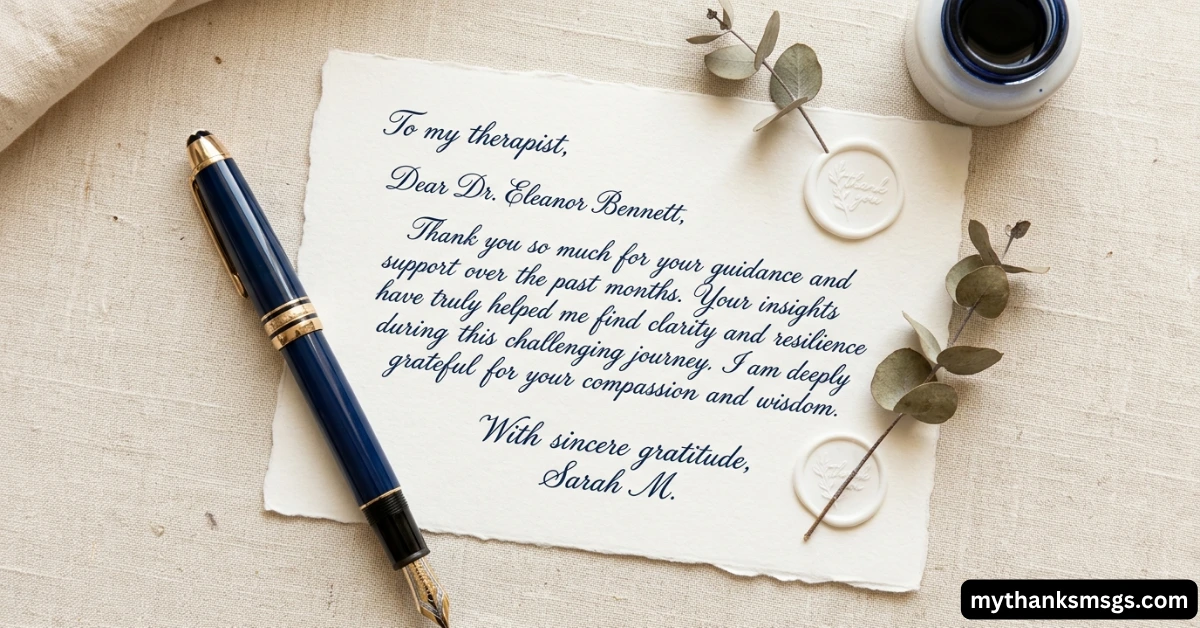 To my therapist,
Dear Dr. Eleanor Bennett,
Thank you so much for your guidance and
support over the past months. Your insights
have truly helped me find clarity and resilience
during this challenging journey. I am deeply
grateful for your compassion and wisdom.
With sincere gratitude,
Sarah M.
thank
you
thank
you
mythanksmsgs.com